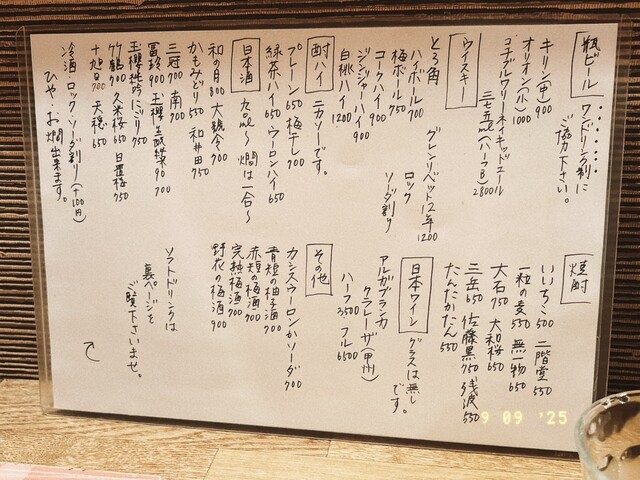 瓶ビール
ワンドリンク制に
ご協力下さい。
キリン(中)900
オリオン(小)1000
コエドブルワリーネイキッドエール
三七五ml(ハーフB)2800
ウイスキー
とろ角
ハイボール700
梅ボール750
コークハイ900
ジンジャーハイ900
白桃ハイ1200
グレンリベット12年1200
ロック
ソーダ割り
酎ハイ
ニカソーです。
プレーン650 梅干し700
緑茶ハイ650 ウーロンハイ650
日本酒
九〇ml〜 燗は一合〜
和の月800 大観令700
かもみどり550 和井田750
三冠700 南700
冨玲900 玉櫻
玉櫻 にごり750
竹鶴900 久米桜650 日置桜750
十旭日700 天穏650
冷酒ロック・ソーダ割り(+100円)
ひや・お燗出来ます。
焼酎
いいちこ500 二階堂550
一粒の麦550 無一物650
大石750 大和桜650
三岳650 佐藤黒750 残波550
たんたかたん550
日本ワイン
グラスは無しです。
アルガブランカ
クラレーザ(甲州)
ハーフ3500 フル6500
その他
カシスウーロンかソーダ700
青短の柚子酒700
赤短の梅酒700
完熟梅酒700
野花の梅酒900
ソフトドリンクは
裏ページを
ご覧下さいませ。
9 09 '25